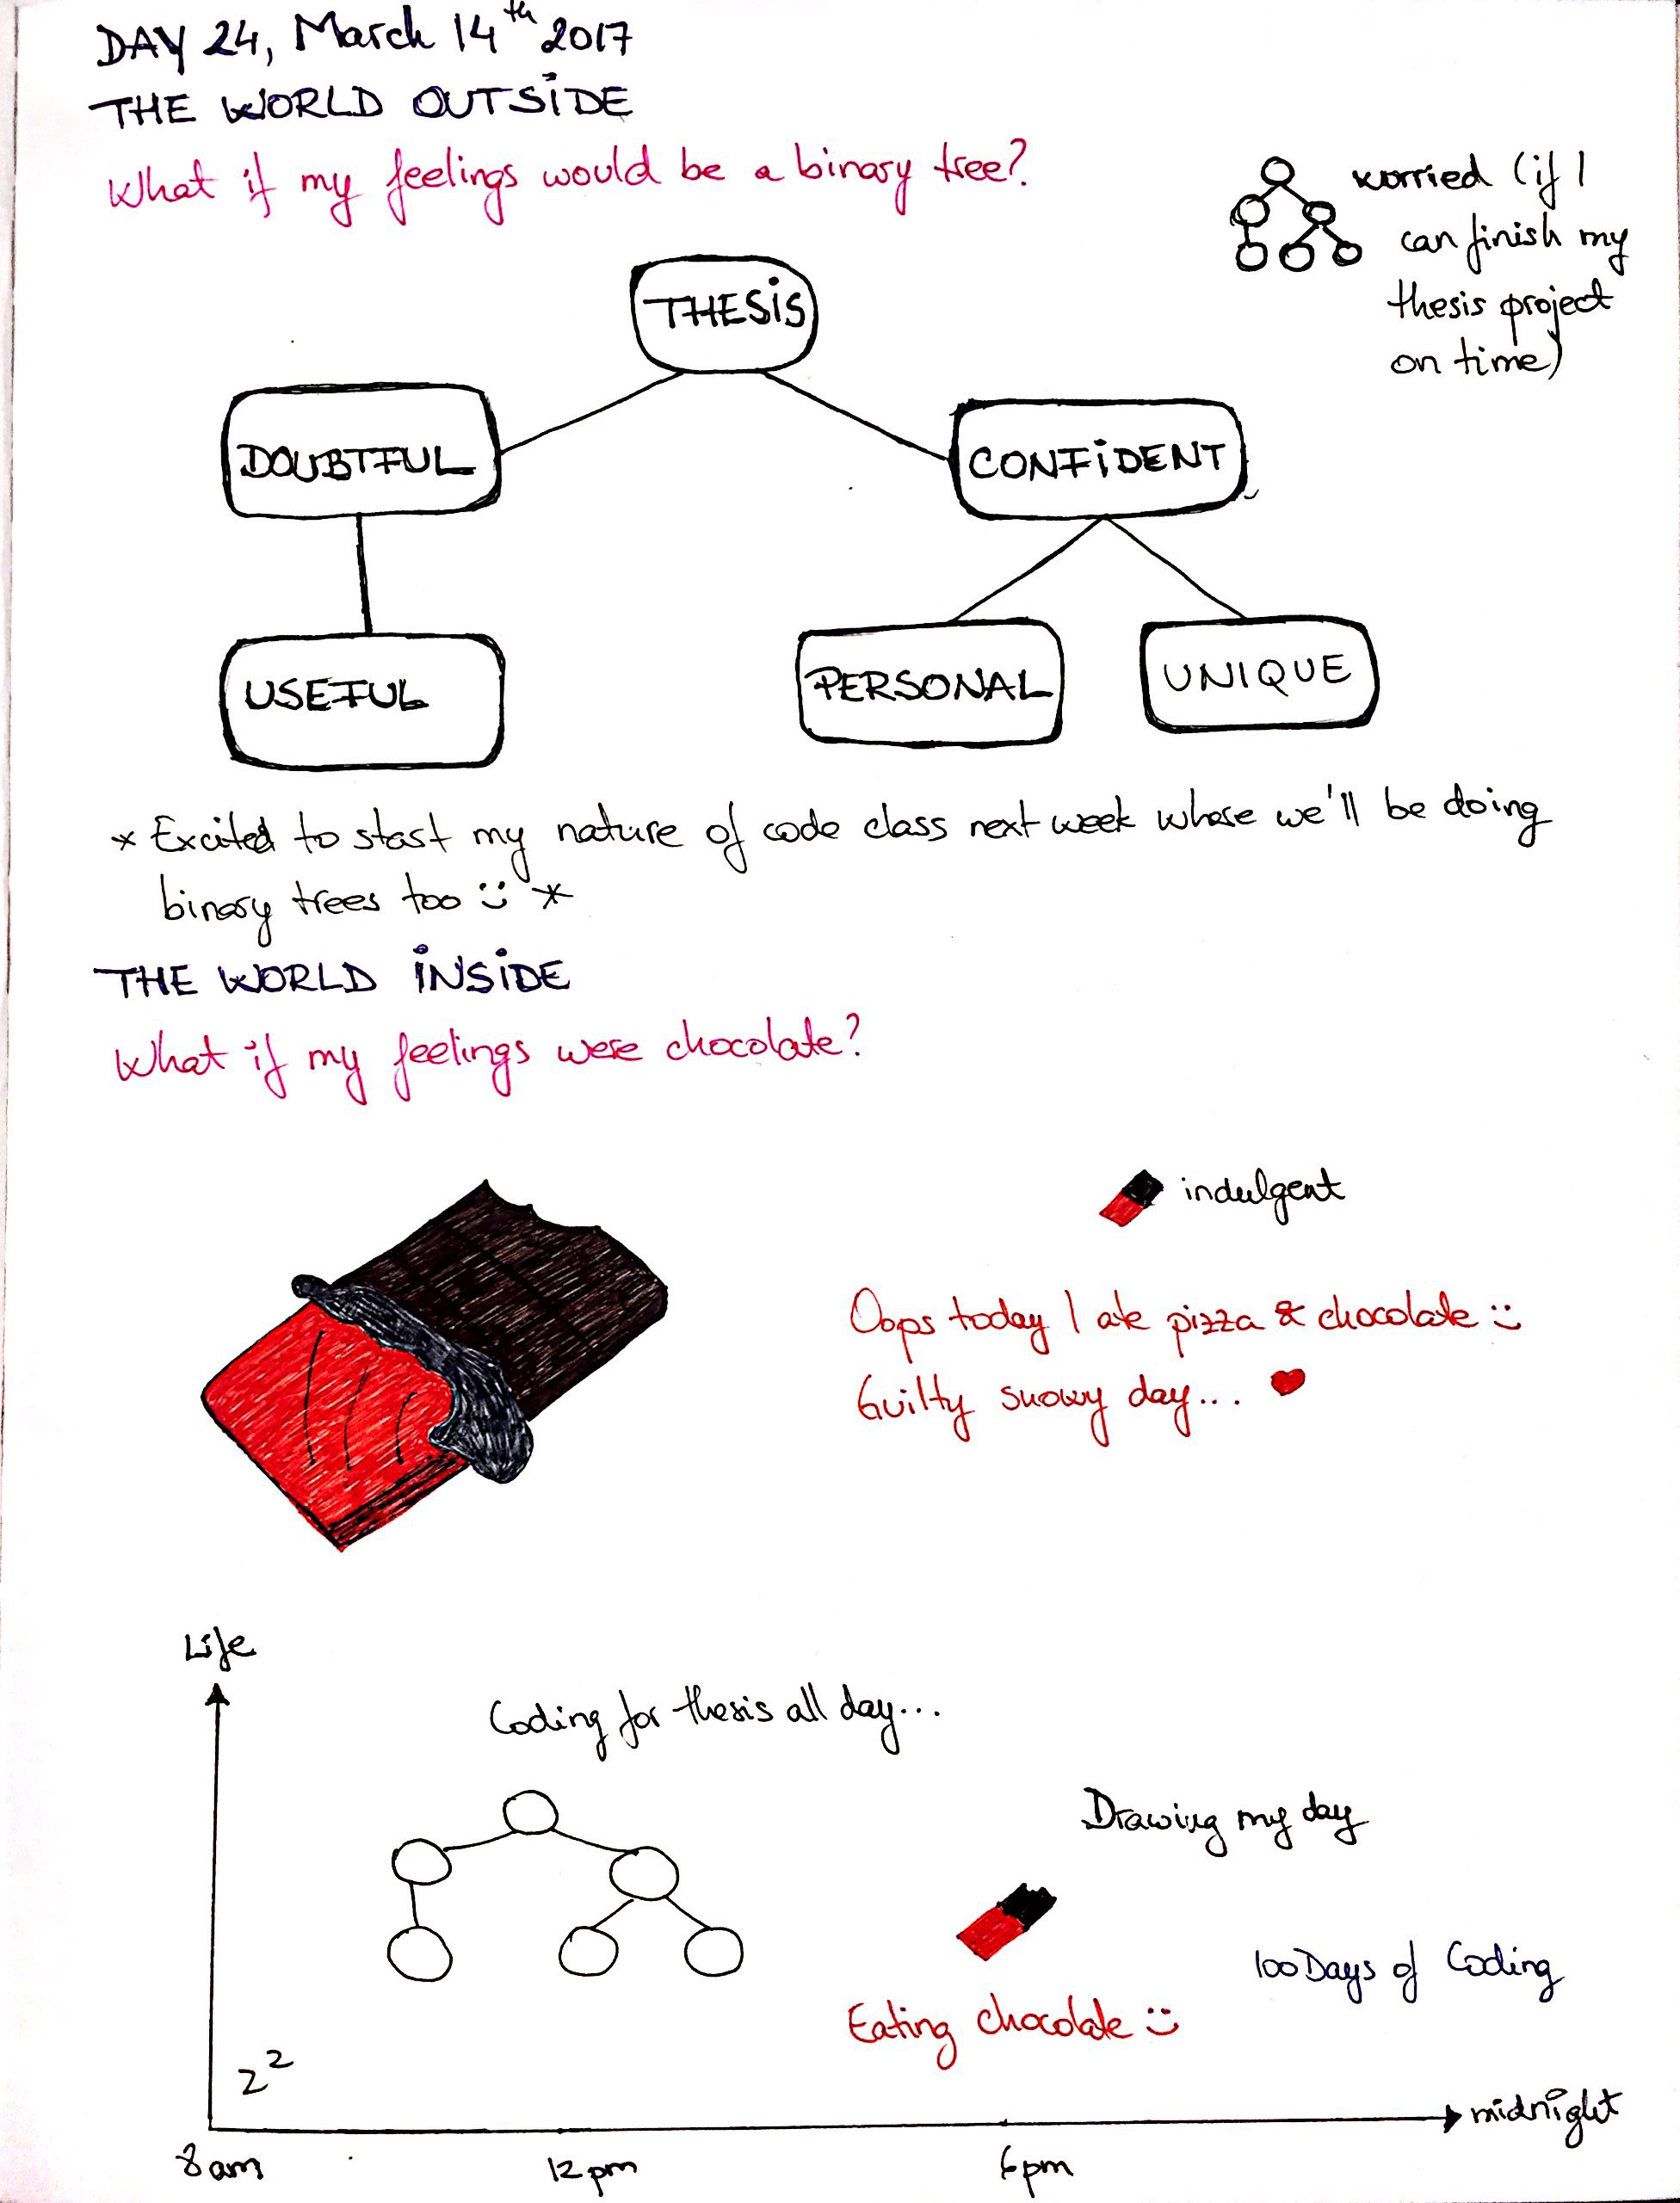 DAY 24, March 14th 2017
THE WORLD OUTSIDE
What if my feelings would be a binary tree?
worried (if I
can finish my
thesis project
on time)
THESIS
DOUBTFUL
CONFIDENT
USEFUL
PERSONAL
UNIQUE
* Excited to start my nature of code class next week where we'll be doing
binary trees too :) *
THE WORLD INSIDE
What if my feelings were chocolate?
indulgent
Oops today I ate pizza & chocolate :)
Guilty snowy day... ♥
Life
Coding for thesis all day...
Drawing my day
100 Days of Coding
Eating chocolate :)
z z
midnight
8am
12pm
6pm